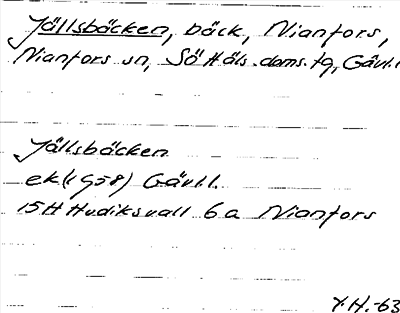 Jällsbäcken, bäck, Nianfors,
Nianfors sn, Sö Häls. doms. tg, Gävl.l
Jällsbäcken
ek (1958) Gävl.l.
15H Hudiksvall 6a Nianfors
Y.H.-63